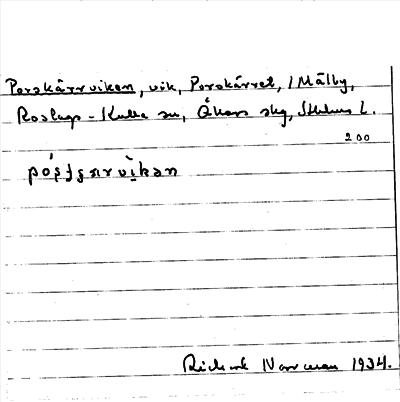 Porskärrviken, vik, Porskärret, / Mälby,
Roslags-Kulla sn, Åkers skg, Sthlms l.
200
Rickard Norrman 1934.